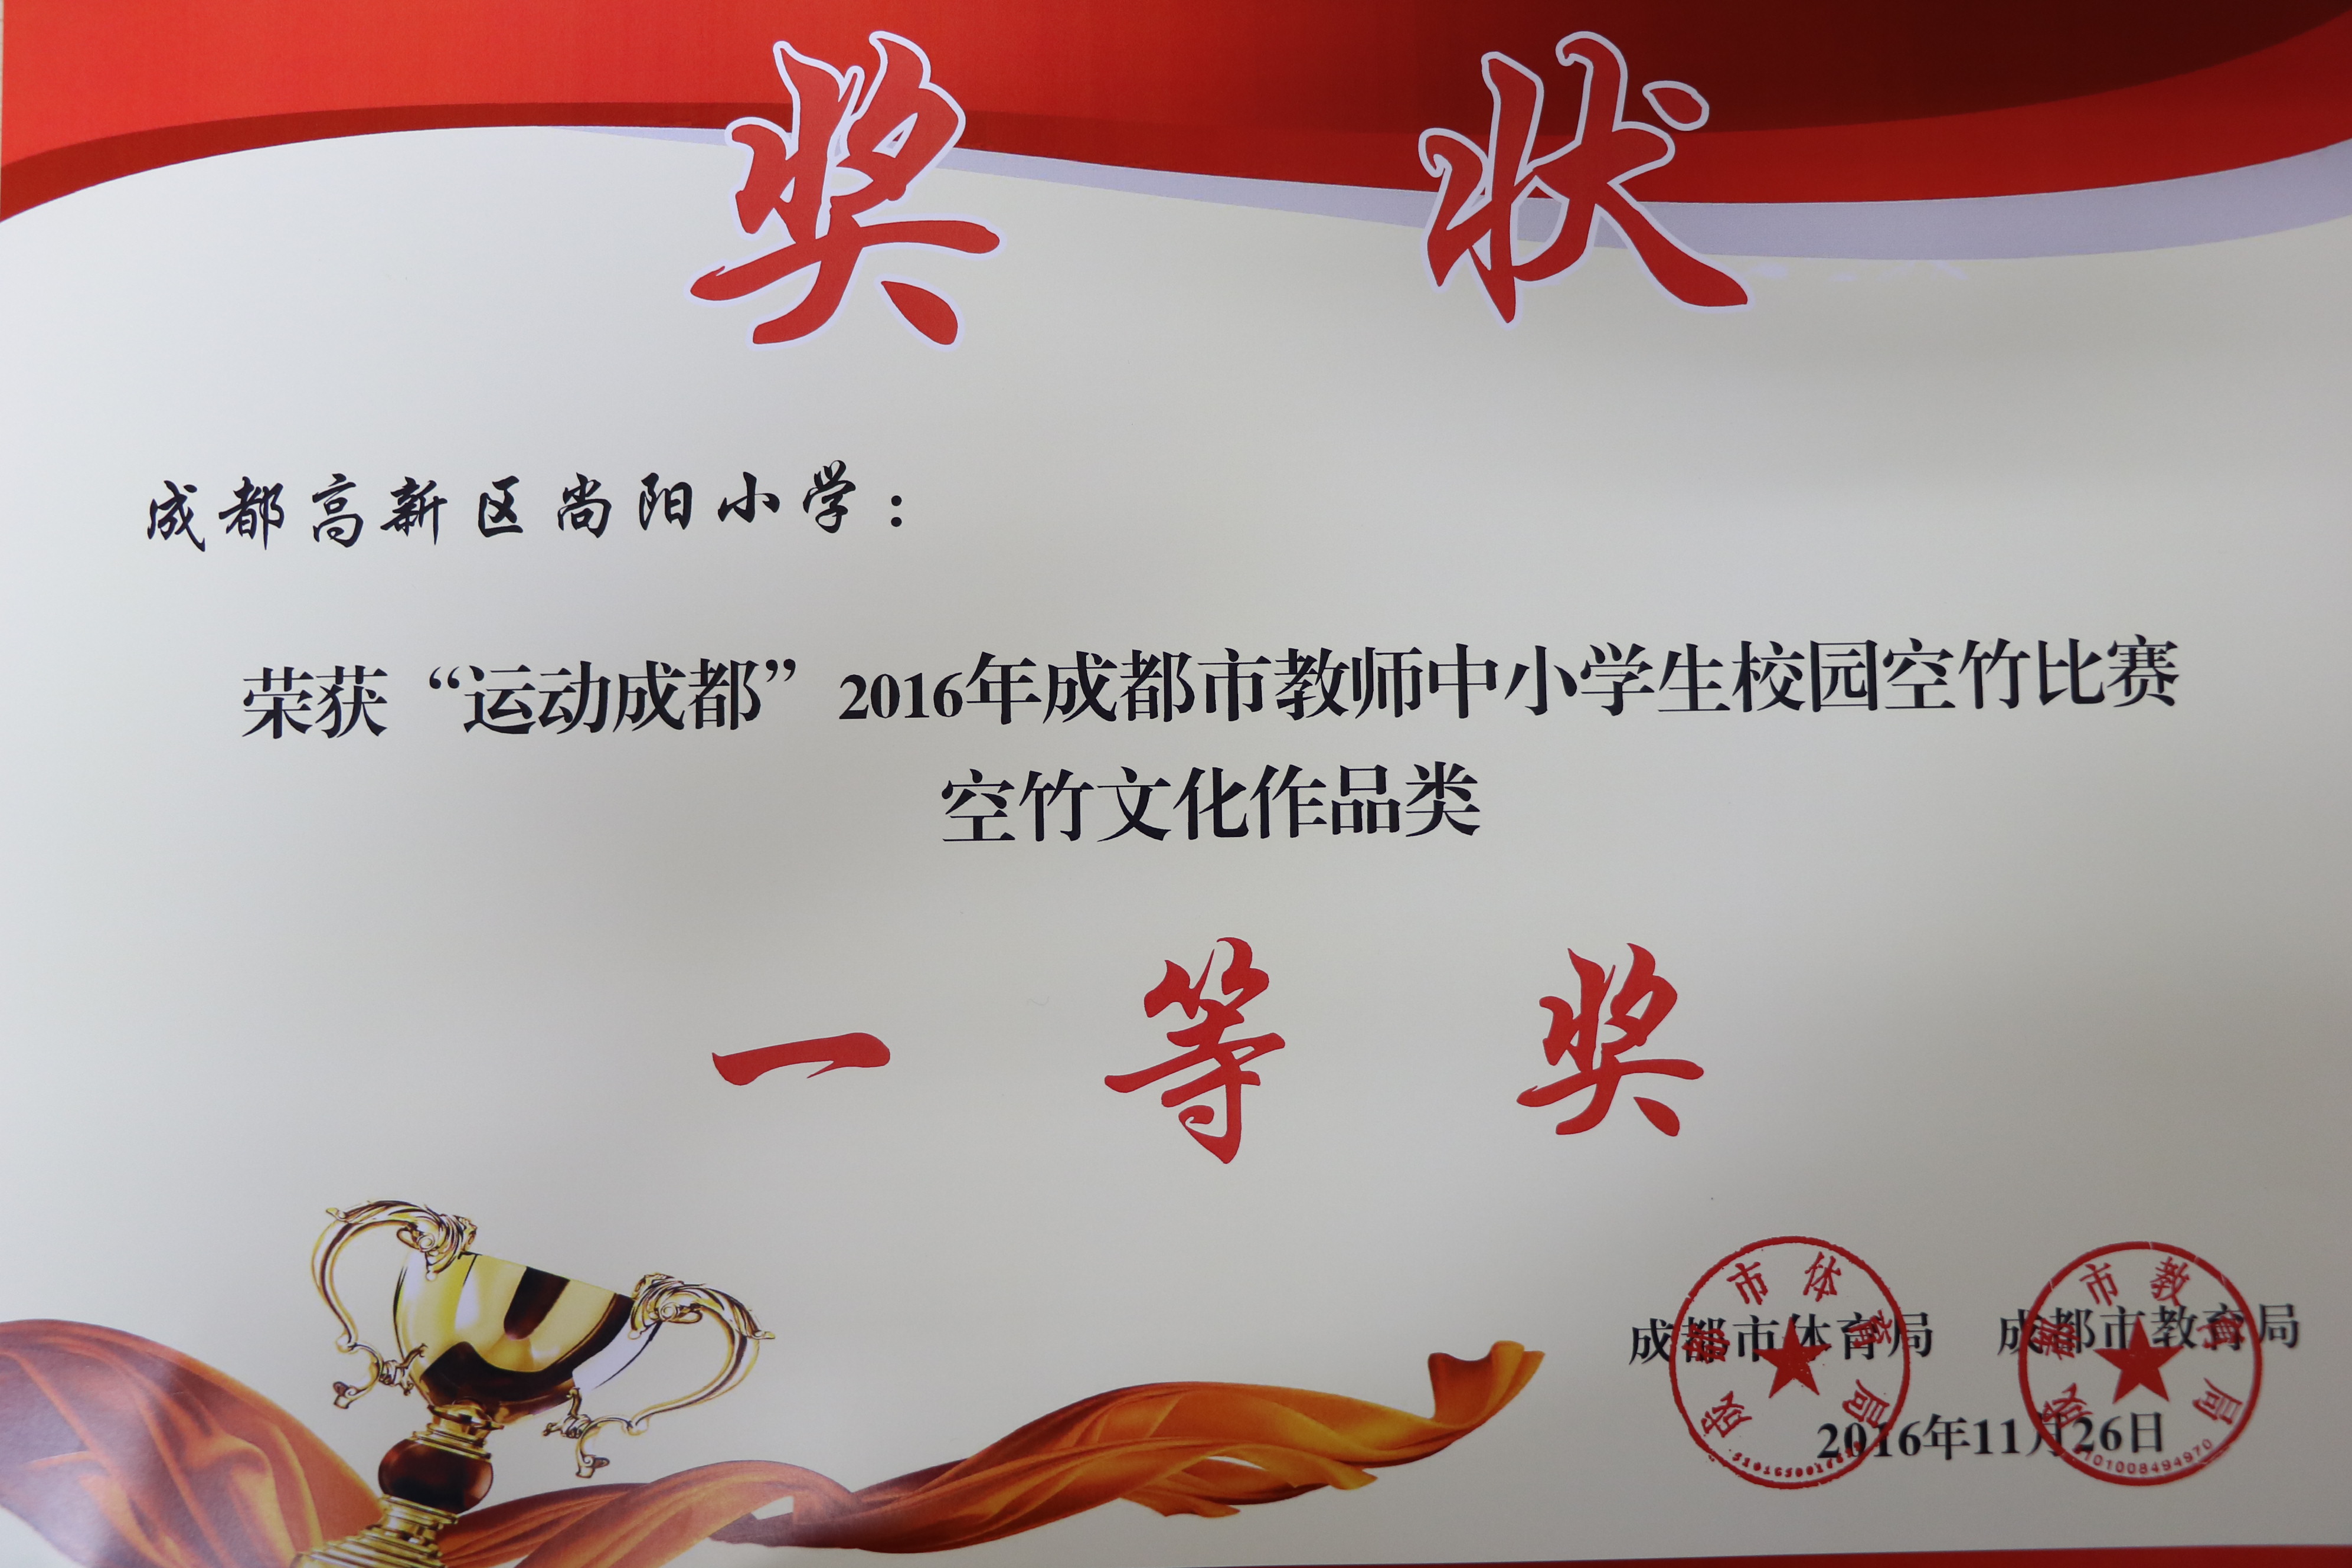 奖状
成都高新区尚阳小学：
荣获“运动成都”2016年成都市教师中小学生校园空竹比赛
空竹文化作品类
一等奖
成都市体育局 成都市教育局
2016年11月26日
成都市体育局
成都市教育局